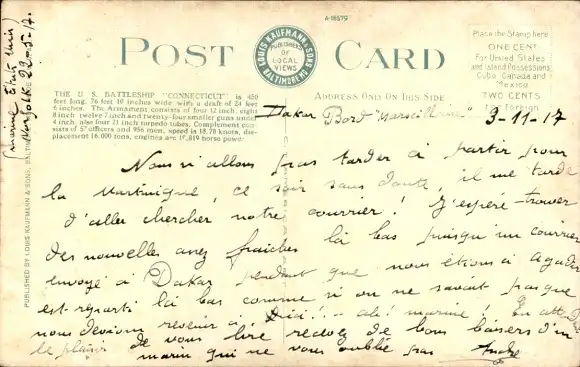 A-18579
POST CARD
LOUIS KAUFMANN & SONS
PUBLISHERS OF LOCAL VIEWS
BALTIMORE MD.
Place the Stamp here
ONE CENT
For United States
and Island Possessions
Cuba, Canada and
Mexico
TWO CENTS
for Foreign
THE U. S. BATTLESHIP "CONNECTICUT" is 450
feet long, 76 feet 10 inches wide with a draft of 24 feet
6 inches. The Armament consists of four 12 inch; eight
8 inch twelve 7 inch and twenty-four smaller guns under
4 inch also four 21 inch torpedo tubes. Complement con-
sists of 57 officers and 956 men, speed is 18.78 knots, dis-
placement 16,000 tons, engines are horse power
ADDRESS ONLY ON THIS SIDE
PUBLISHED BY LOUIS KAUFMANN & SONS, BALTIMORE
Norfolk 22-5-17.
Dakar Bord "Marseillaise" 3-11-17
Nous n'allons pas tarder à partir pour
la Martinique, ce soir sans doute, il me tarde
d'aller chercher notre courrier! J'espère trouver
des nouvelles assez fraiches là bas puisqu'un courrier
envoyé à Dakar pendant que nous étions à Agadir
est reparti là bas comme si on ne savait pas que
nous devions revenir ici! - ah! marine! En attend
le plaisir de vous lire recevez de bons baisers d'un
marin qui ne vous oublie pas André